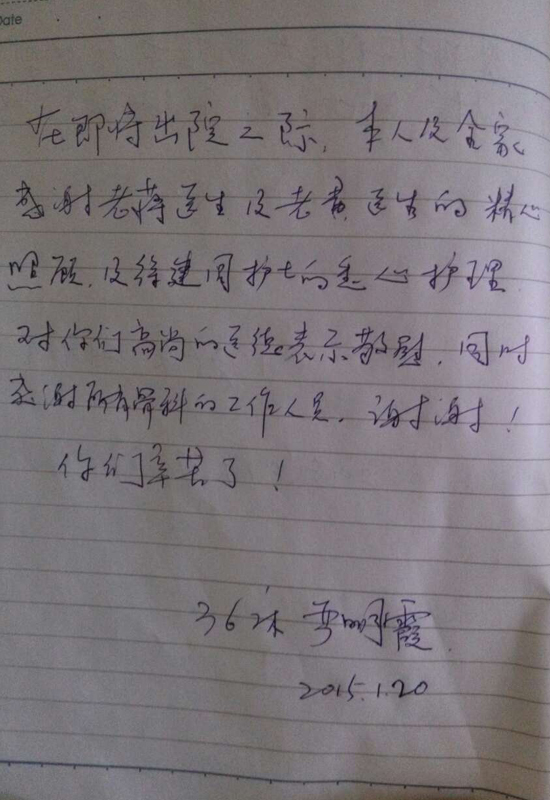 Date
在即将出院之际，本人及全家
感谢老蒋医生及老黄医生的精心
照顾，及徐建国护士的悉心护理
对你们高尚的医德表示敬慰，同时
感谢所有骨科的工作人员，谢谢！
你们辛苦了！
36床 明霞
2015.1.20